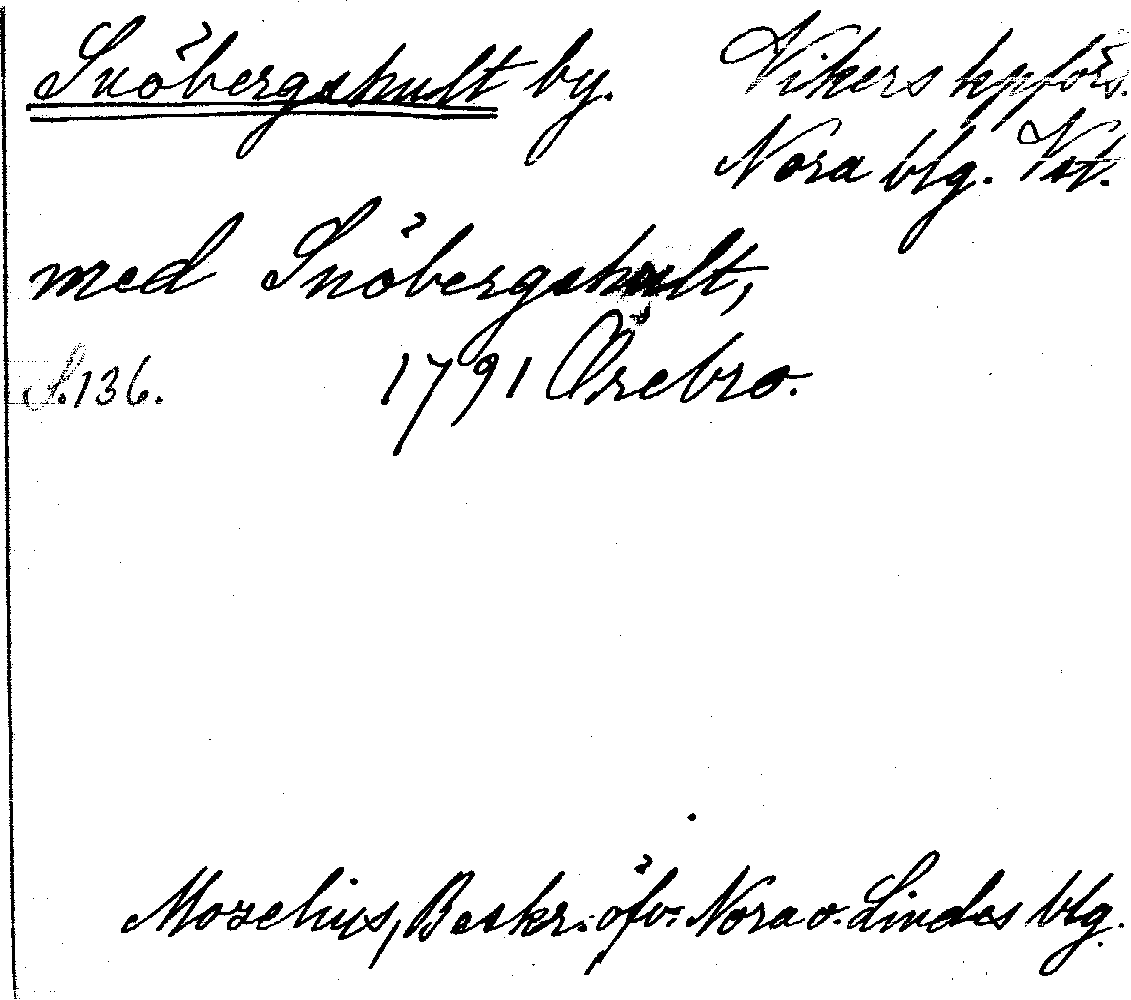 Snöbergshult by. Vikers kpförs.
Nora blg. Vst.
med Snöbergshult,
S. 136. 1791 Örebro.
Mozelius, Beskr. öfv. Nora o. Lindes blg.